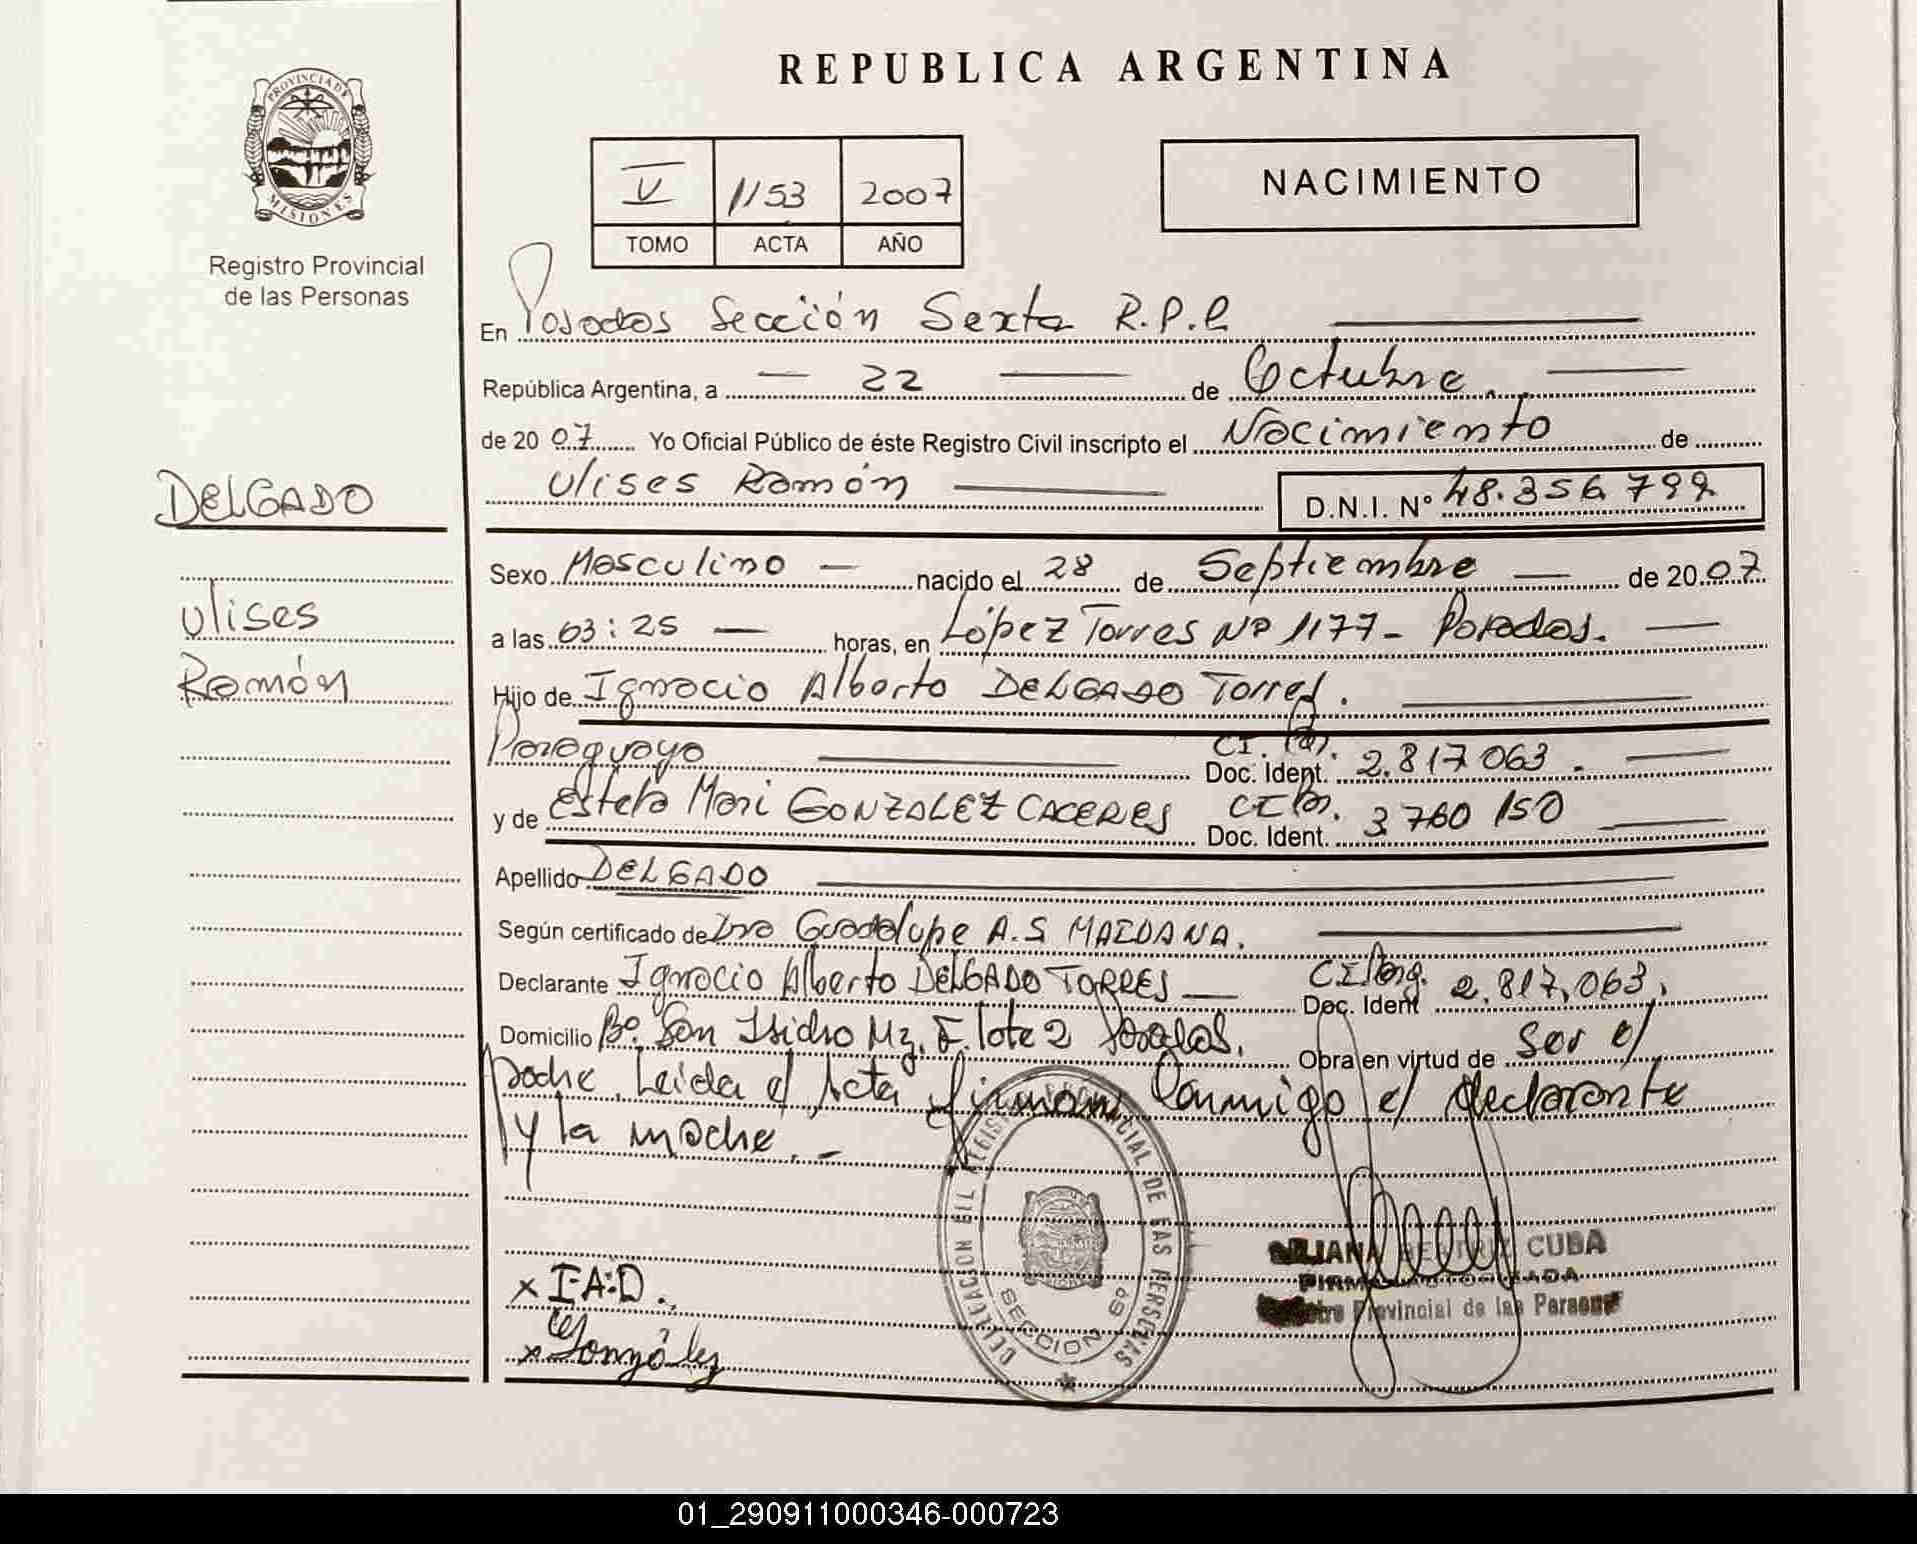 REPUBLICA ARGENTINA
PROVINCIA DE MISIONES
Registro Provincial
de las Personas
V 1153 2007
TOMO ACTA AÑO
NACIMIENTO
En Posadas Sección Sexta R.P.P.
República Argentina, a 22 de Octubre.
de 2007 Yo Oficial Público de éste Registro Civil inscripto el Nacimiento de
Ulises Ramón D.N.I. Nº 48.356.799
DELGADO
Ulises
Ramón
Sexo Masculino nacido el 28 de Septiembre de 2007
a las 03:25 horas, en López Torres Nº 1177 - Posadas.
Hijo de Ignacio Alberto DELGADO Torres.
Paraguayo Doc. Ident. CI. 2.817 063.
y de Estela Mari GONZALEZ CACERES Doc. Ident. 3 760 150
Apellido DELGADO
Según certificado de Dra Guadalupe A.S MAIDANA.
Declarante Ignacio Alberto DELGADO TORRES Doc. Ident 2.817,063.
Domicilio Bº. San Isidro Mz. F. lote 2 Posadas. Obra en virtud de Ser el
padre. Leida el Acta firman Conmigo el declarante
y la madre. -
x I.A.D.
x González
DELEGACION DEL REGISTRO PROVINCIAL DE LAS PERSONAS
SECCION 6º
BEATRIZ CUBA
FIRMA AUTORIZADA
Registro Provincial de las Personas
01_290911000346-000723